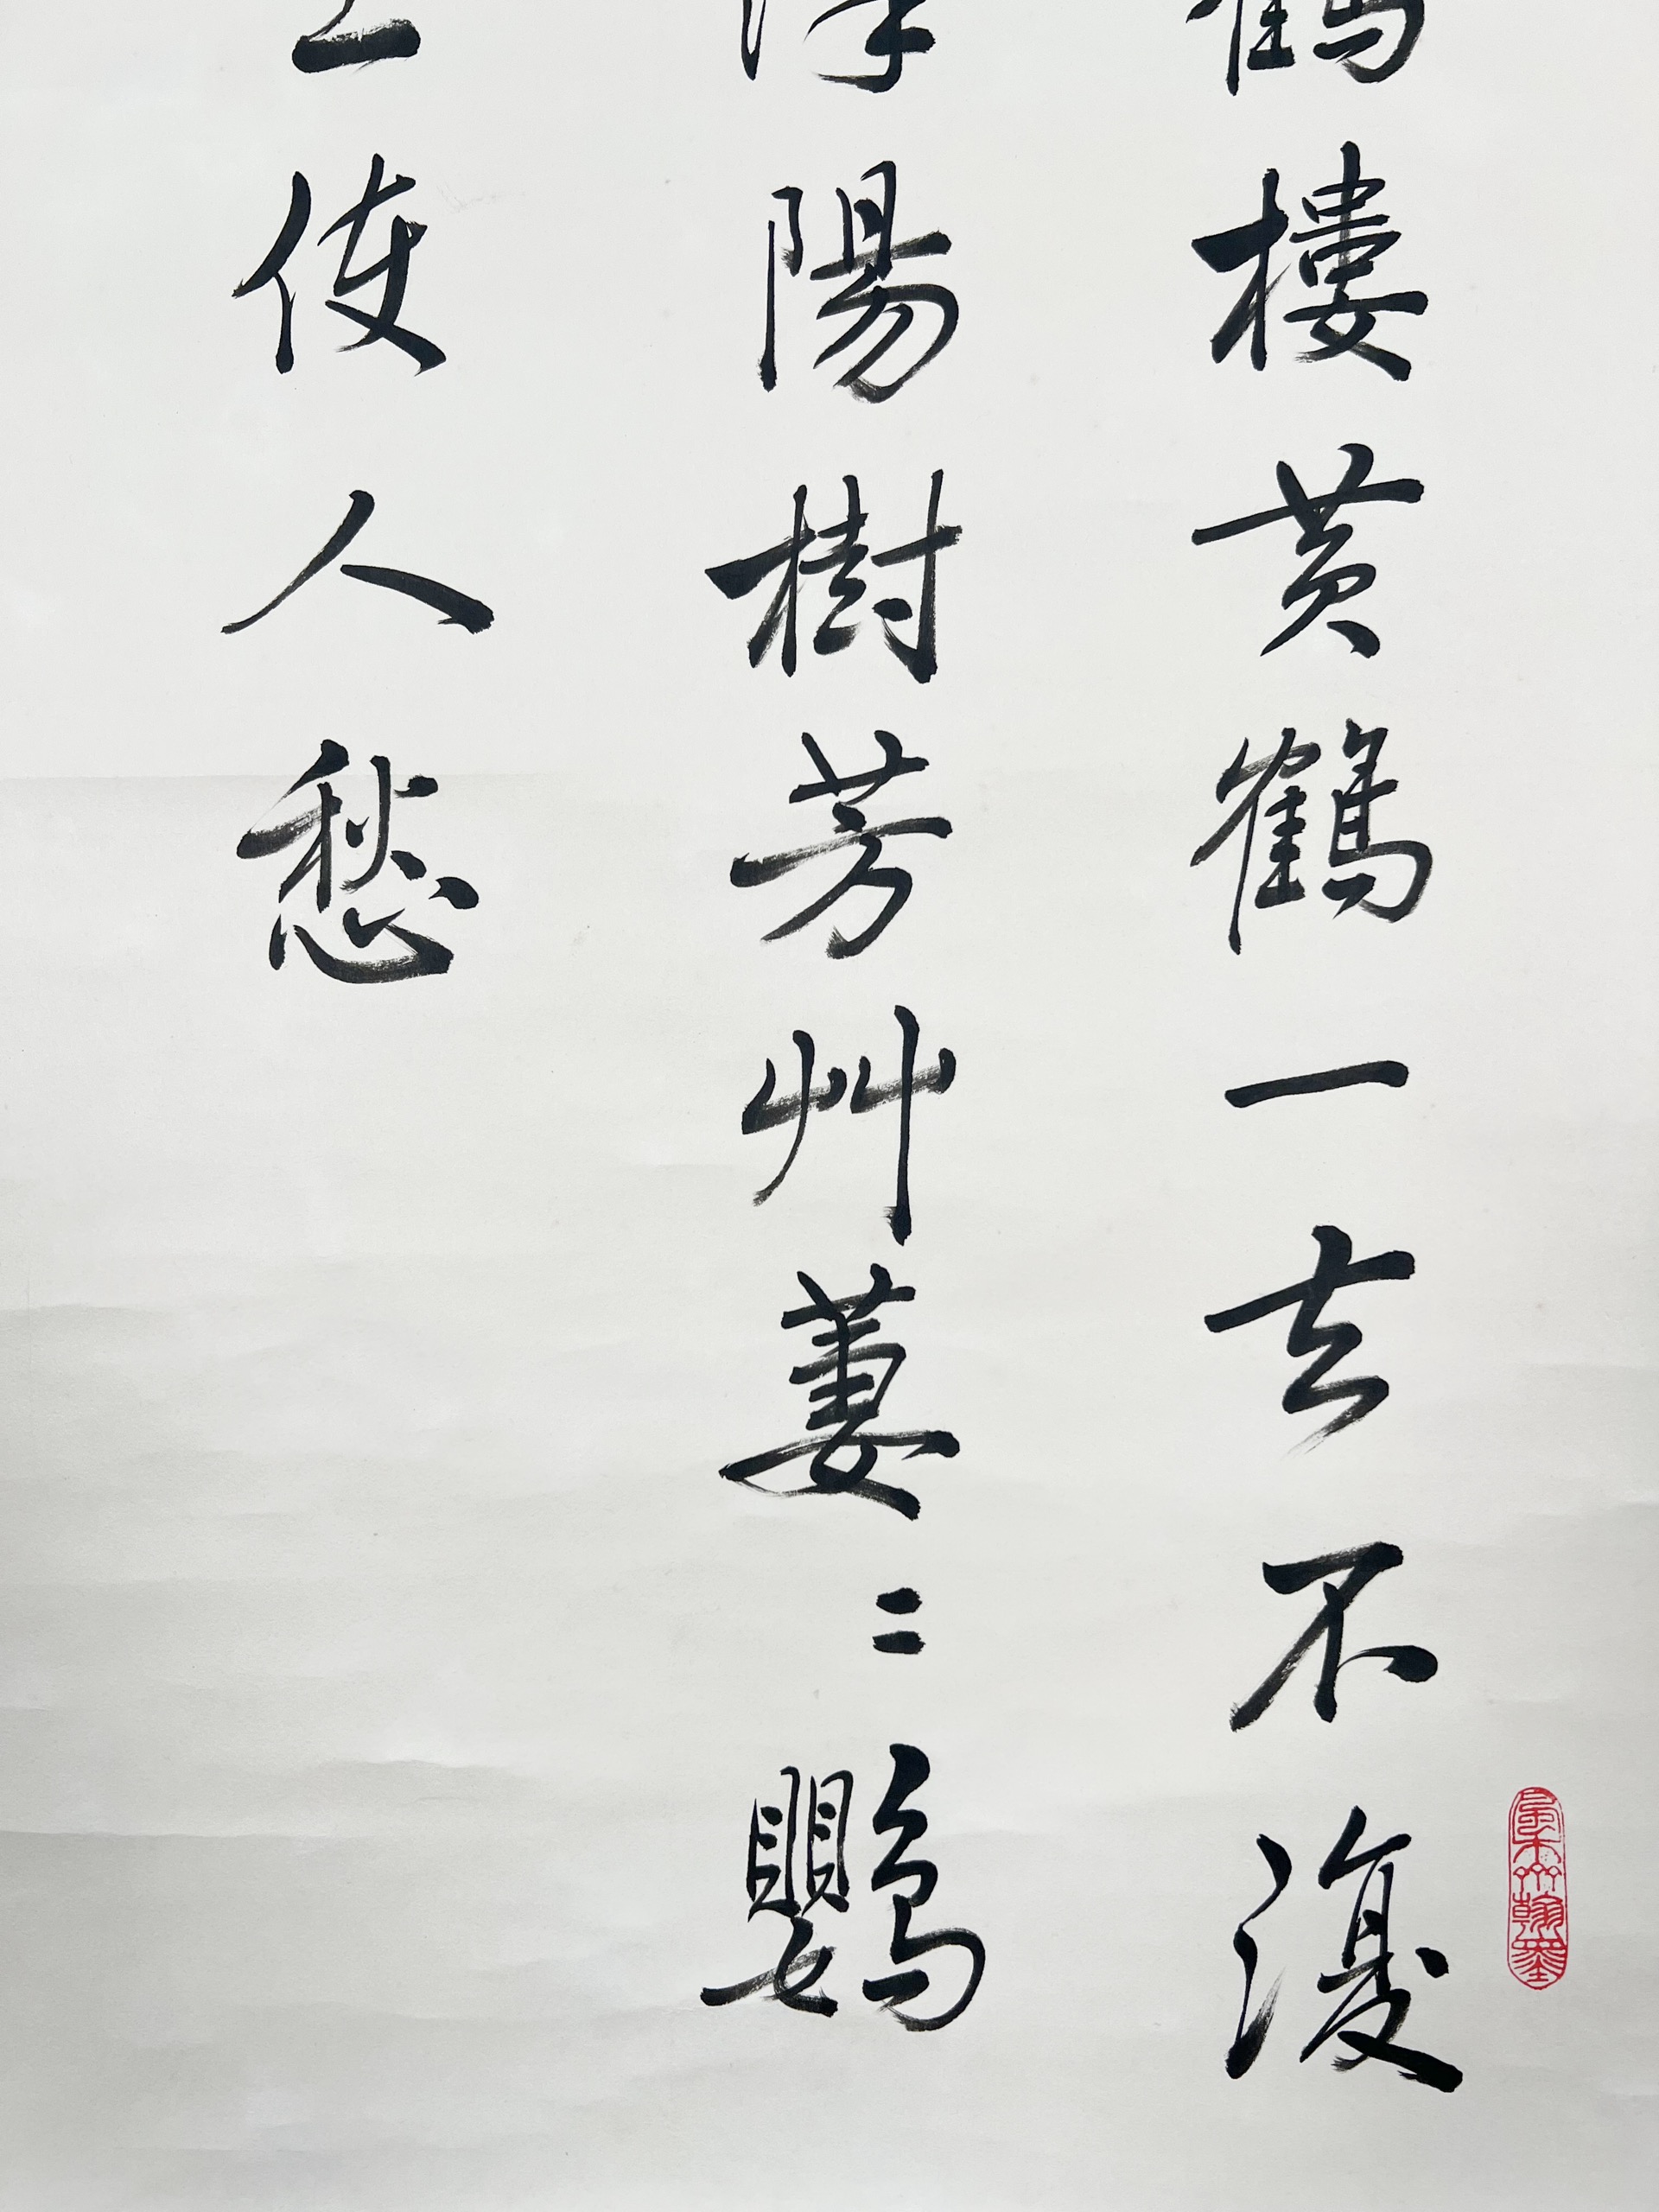 鶴樓黄鶴一去不復
陽樹芳艸萋〻鸚
上使人愁